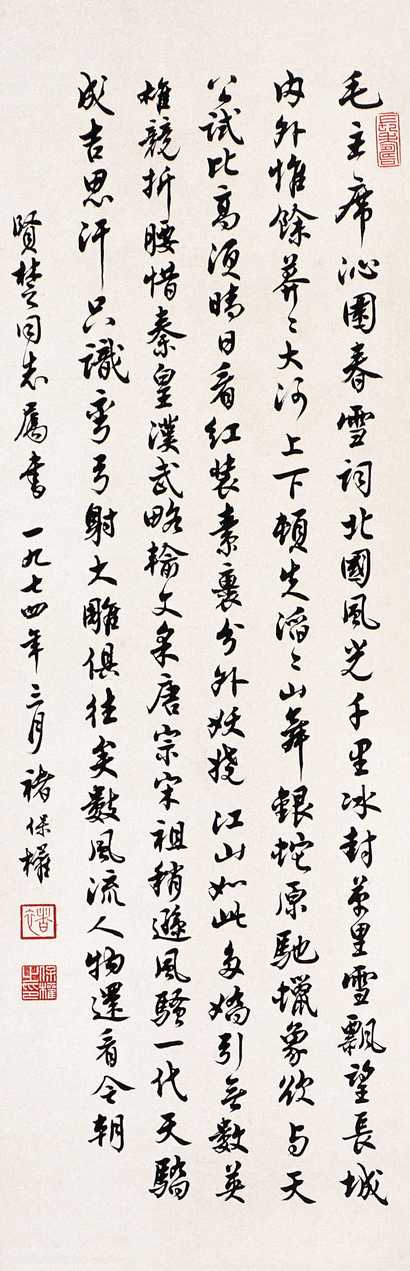 毛主席沁園春雪詞北國風光千里冰封萬里雪飄望長城
内外惟餘莽〻大河上下頓失滔〻山舞銀蛇原馳蠟象欲与天
公試比高須晴日看紅裝素裹分外妖嬈江山如此多嬌引無數英
雄競折腰惜秦皇漢武略輸文采唐宗宋祖稍遜風騷一代天驕
成吉思汗只識彎弓射大雕俱往矣數風流人物還看今朝
賢楚同志屬書 一九七四年三月 褚保權
褚
保權之印